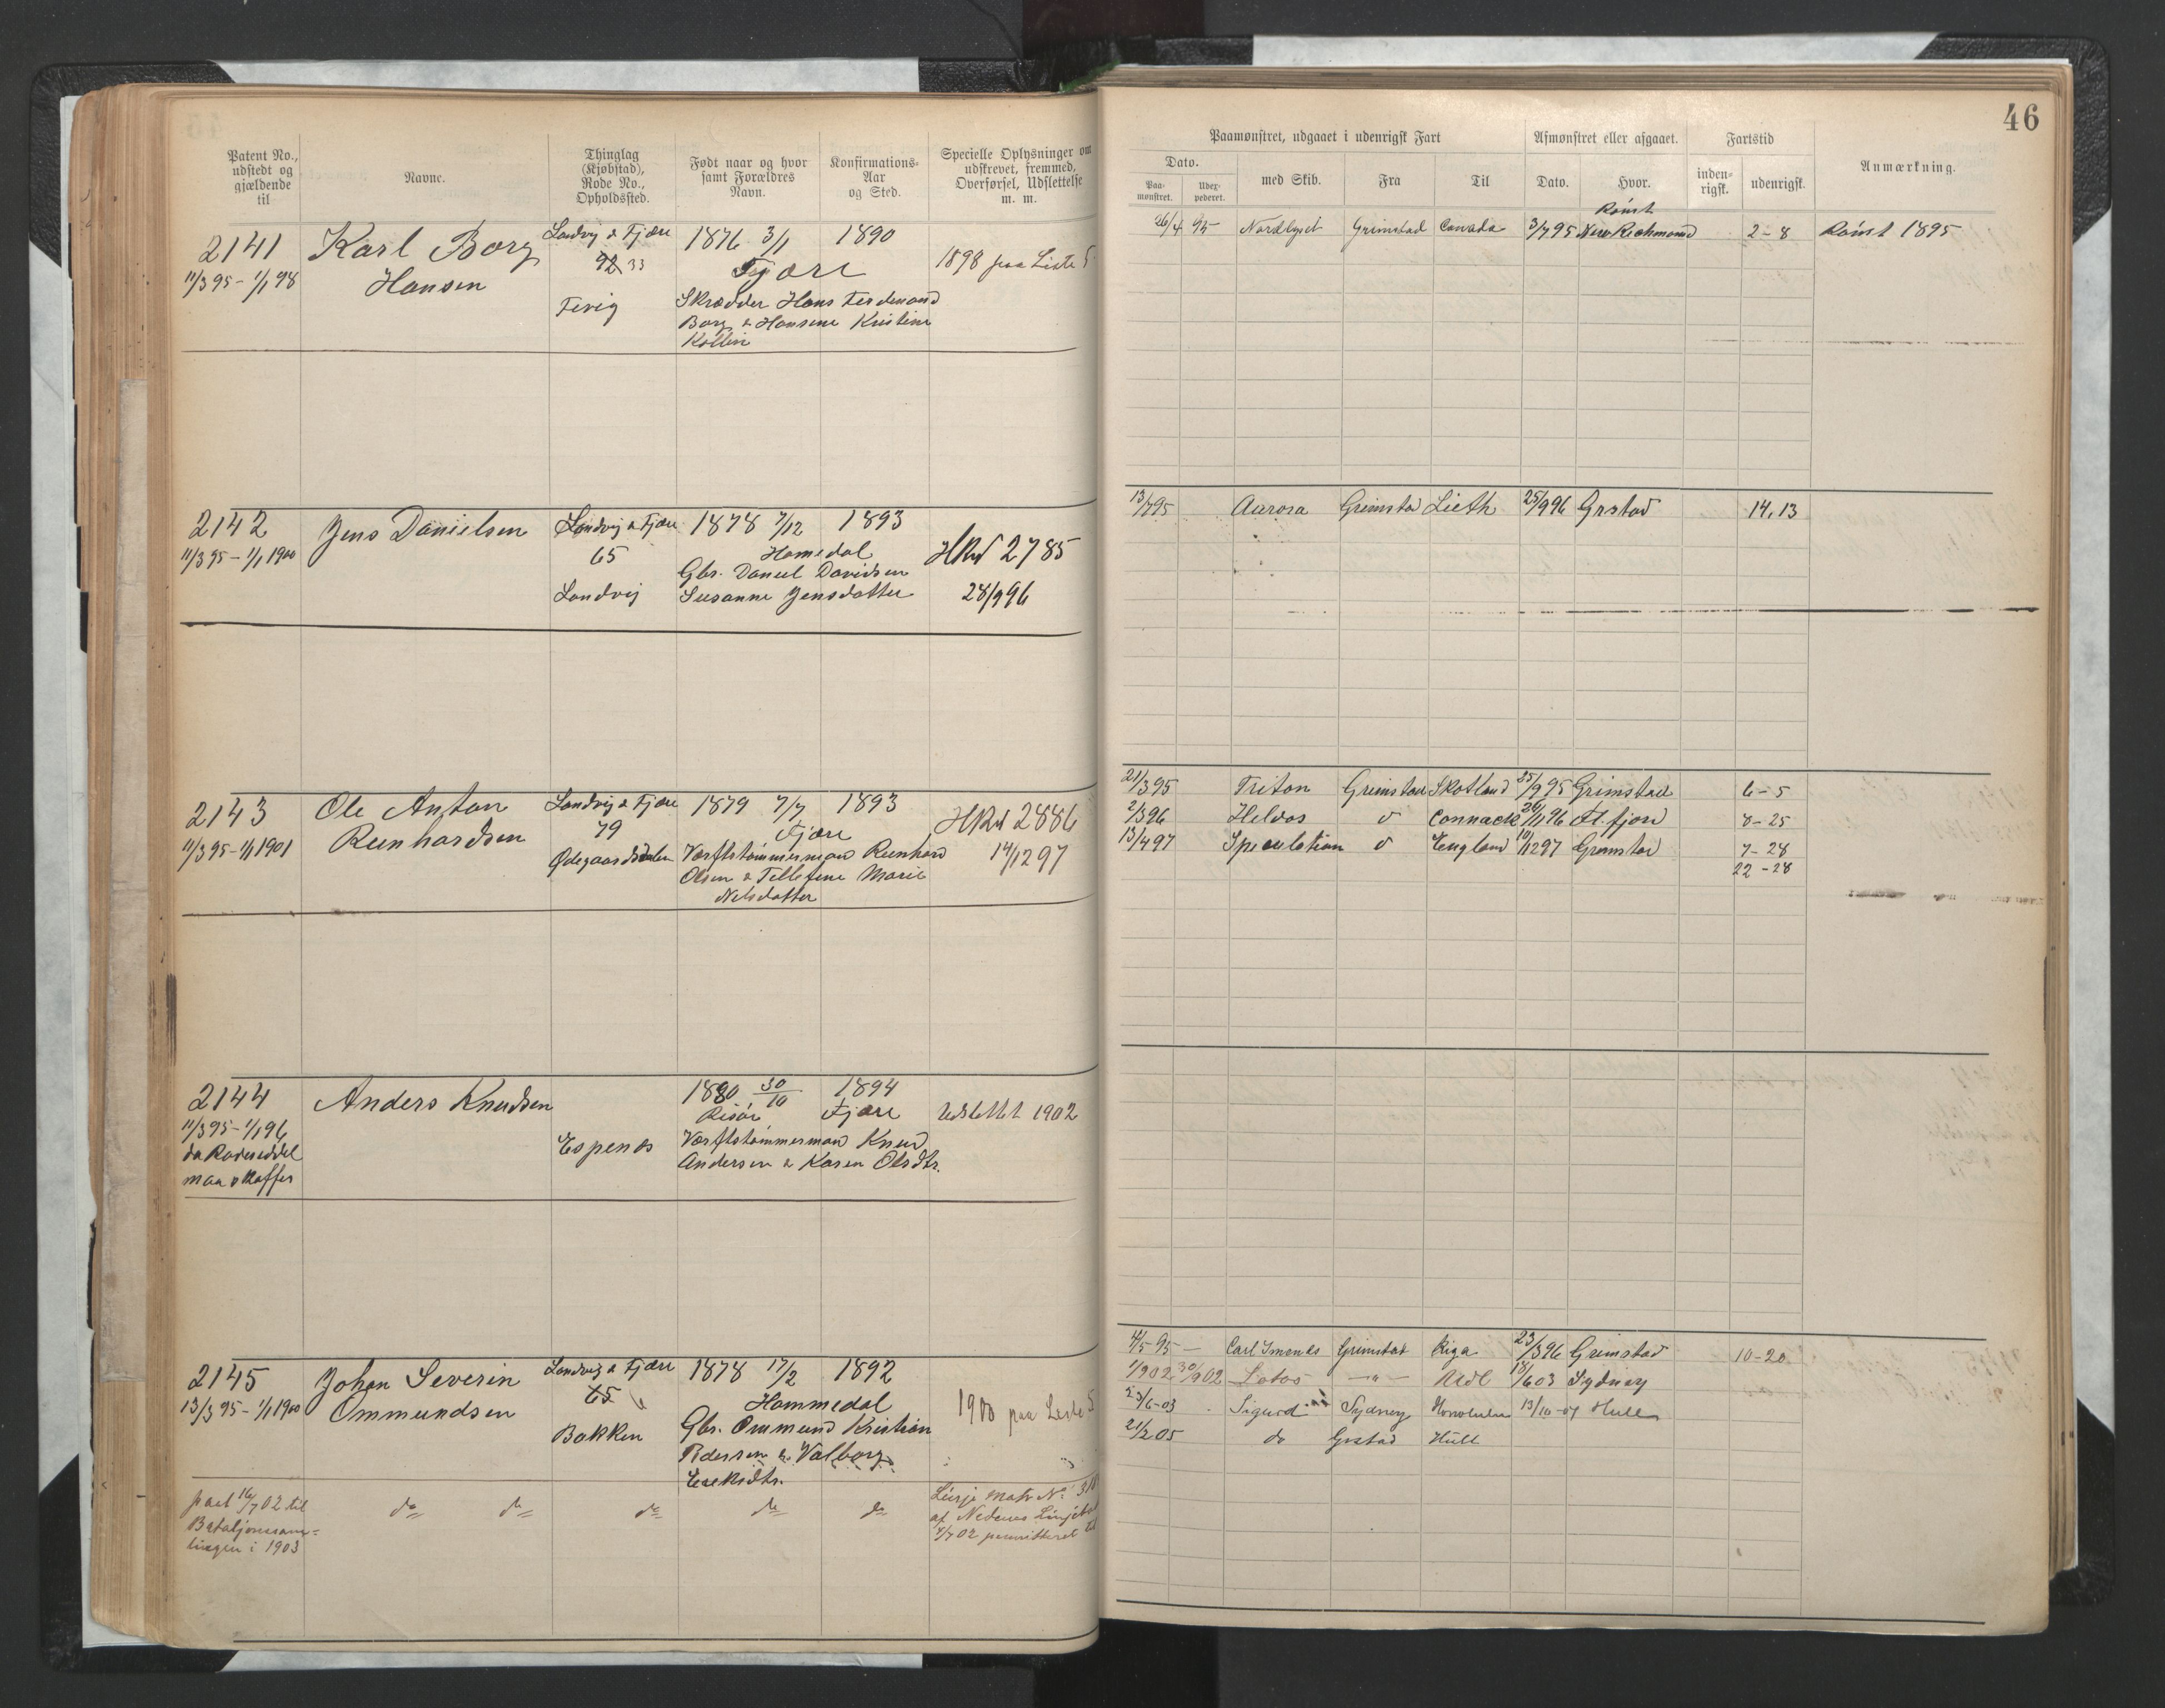 46
Patent No., udstedt og gjældende til
Navne.
Thinglag (Kjøbstad), Rode No., Opholdssted.
Født naar og hvor samt Forældres Navn.
Konfirmations-Aar og Sted.
Specielle Oplysninger om udskrevet, fremmed, Overførsel, Udslettelse m. m.
Paamønstret, udgaaet i udenrigsk Fart
Dato.
Paa-mønstret.
Udex-pederet.
med Skib.
Fra
Til
Afmønstret eller afgaaet.
Dato.
Hvor.
Fartstid
inden-rigsk.
udenrigsk.
Anmærkning.
2141
11/3 95 - 1/1 98
Karl Borg
Hansen
Landvig & Fjære
92 33
Fevig
1876 3/1 1890
Fjære
Skrædder Hans Ferdinand
Borg & Hansine Kristine
Kollin
1898 paa Liste 5
26/4 95 Nordlyst Grimstad Canada 3/7 95 New Richmond 2-8 Rømt 1895
Rømt
2142
11/3 95 - 1/1 1900
Jens Danielsen
Landvig & Fjære
65
Landvig
1878 7/12 1893
Homedal
Gbr. Daniel Davidsen
Susanne Jensdatter
2785
28/9 96
13/7 95 Aurora Grimstad Lieth 25/9 96 Grstad 14,13
2143
11/3 95 - 1/1 1901
Ole Anton
Reinhardsen
Landvig & Fjære
79
Ødegaardsdalen
1879 7/7 1893
Fjære
Værftstømmerman Reinhard
Olsen & Tellefine Marie
Nilsdatter
2886
14/12 97
21/3 95 Triton Grimstad Skotland 25/9 95 Grimstad 6-5
2/3 96 Helios 26/11 96 8-25
13/4 97 Speculation England 10/12 97 Grimstad 7-28
22-28
2144
11/3 95 - 1/1 96
da Rodeseddel
maa skaffes
Anders Knudsen
Espenes
1880 30/10 1894
Risør Fjære
Værftstømmerman Knud
Andersen & Karen Olsdtr.
Udslettet 1902
2145
13/3 95 - 1/1 1900
Johan Severin
Ommundsen
Landvig & Fjære
65
Bakken
1878 17/2 1892
Hommedal
Gbr. Ommund Kristian
Pedersen & Valborg
Eriksdtr.
1900 paa Liste 5
4/5 95 — Carl Grimstad Riga 23/3 96 Grimstad 10-20
1/9 02 30/9 02 Lotos —"— 18/6 03 Sydney
23/6-03 Sigurd Sydney Honolulu 13/10-04 Hull
21/2 05 do Grstad Hull
pat 16/7 02 til
Bataljonssam=
lingen i 1903
do do do do do
Linje Matr No.
af Nedenes
7/7 02 permitteret til